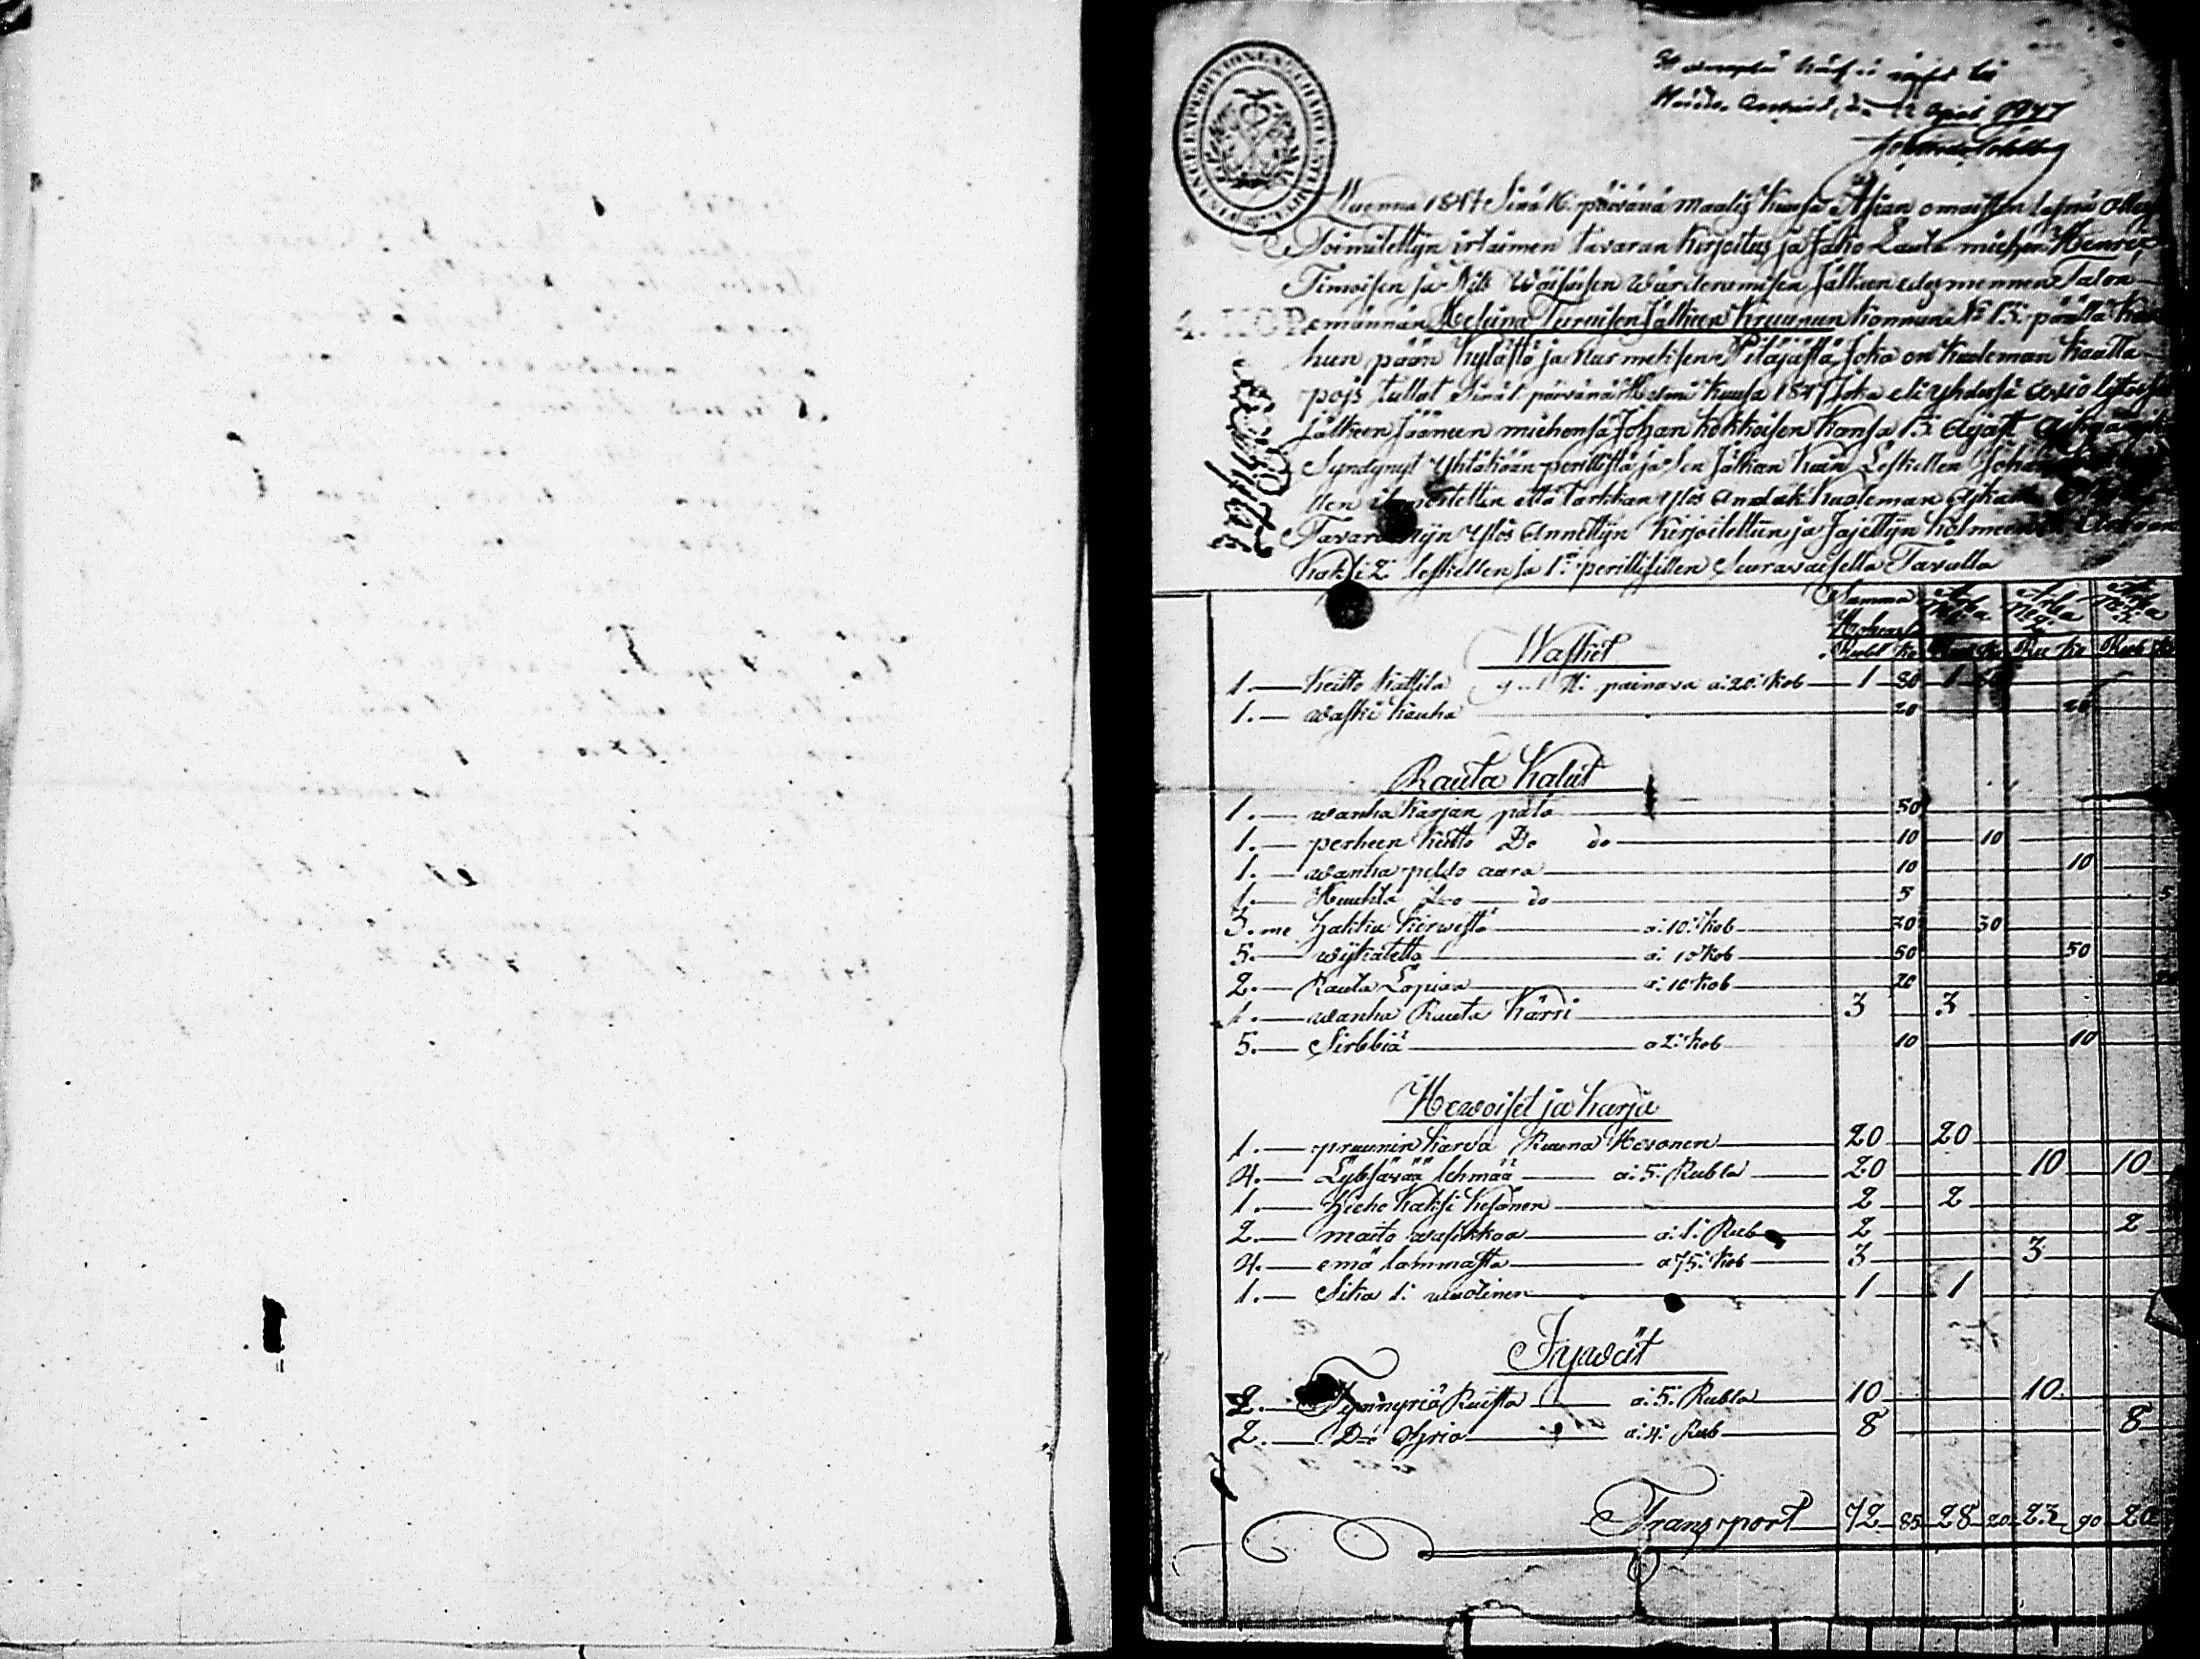 12 April 1847
Wuonna 1847 Sinä 16. päivänä Maalis Kuusa Asian omaisten läsnä olles
Toimitettijn irtaimen tavaran Kirjoitus ja Jako Lauta miehen Henric
Timoisen ja Nils Wäisäisen Wärderemisen Jälkeen edesmennen Talon
4. KOP. emännän Helena Turuisen Jälkeen Kruunun Konnun No 15. päältä Kar
hun pään Kylästä ja Nurmeksen Pitäjästä Joka on Kuoleman Kautta
pojs tullut Sinä 1 päivänä Helmi Kuusa 1847 Joka eli yhdessä avio
Jälkeen Jäänen miehensä Johan Kokkoisen Kansa 15. Ajast
Syndynyt Yhtäkään perillistä ja sen Jälkeen Kuin Leskellen Johan
llen ilmoitettin että tarkkan Ylös andak Kuoleman
Tavara Ylös Annettijn Kirjoitettiin ja Jajettijn Kolmeen
Kaksi 2 leskellen ja 1. perillisillen Seuravaisella Tavalla
Summa
Rubl Ko Ru Ko Rub
Wasket
1. Keitto Kattila painava a. 20. Kob 1 80 1
1. waski Kauha 20 20
Rauta Kalut
1. wanha Karjan pata 50
1. perheen Keitto Do do 10 10
1. wanha peldo aura 10 10
1. Huuhta do 5 5
3. me Hakku Kirwestä a. 10. Kob 30 30
5. wijkatetta a. 10 Kob 50 50
2. Rauta Lapiaa a. 10 Kob 20
1. wanha Rauta Kärri 3 3
5. Sirbbiä a 2. Kob 10 10
Hewoiset ja Karja
1. pruunin Karva Ruuna Hevonen 20 20
4. Lybsävää lehmää a. 5. Rubla 20 10 10
1. Hieho Kaksi Kesänen 2 2
2. maito wasikkaa a. 1. Rub 2 2
4. emä lammasta a 75. Kob 3 3
1. Sika 1. wuotinen 1 1
Jywät
2. Tynnyriä Ruista a. 5. Rubla 10 10
2. Do Ohria a. 4. Rub 8 8
Transport 72 85 28 20 23 90 20